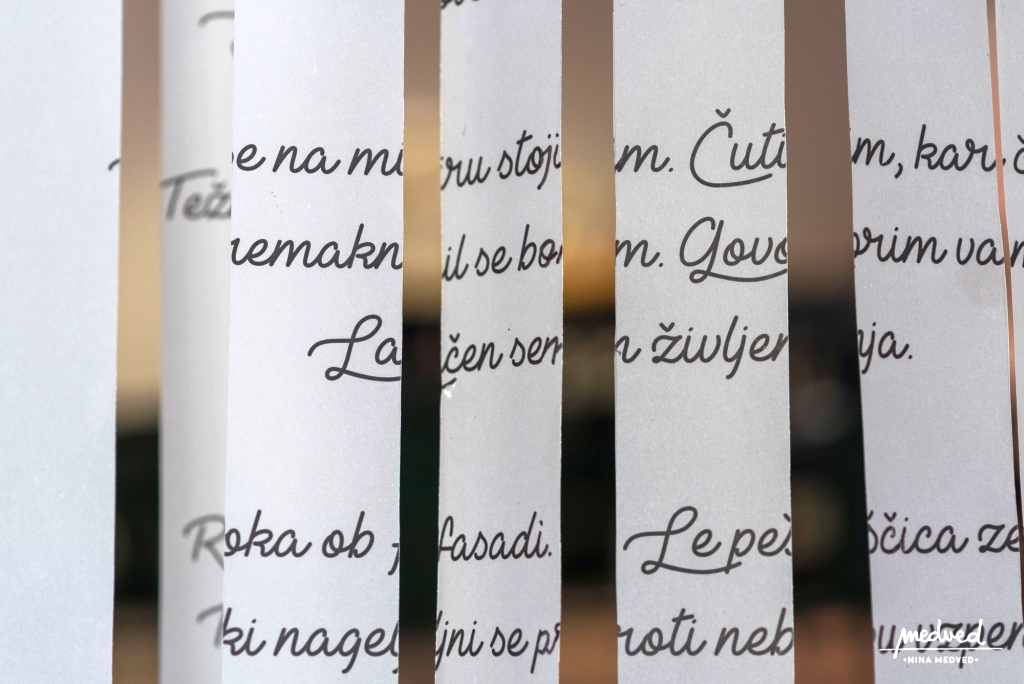 na miru stojim. Čutim, kar
nemaknil se bom. Govorim
Lačen sem življenja.
Roka ob fasadi. Le peščica
nageljni se proti nebu vzpen
medved
•NINA MEDVED•